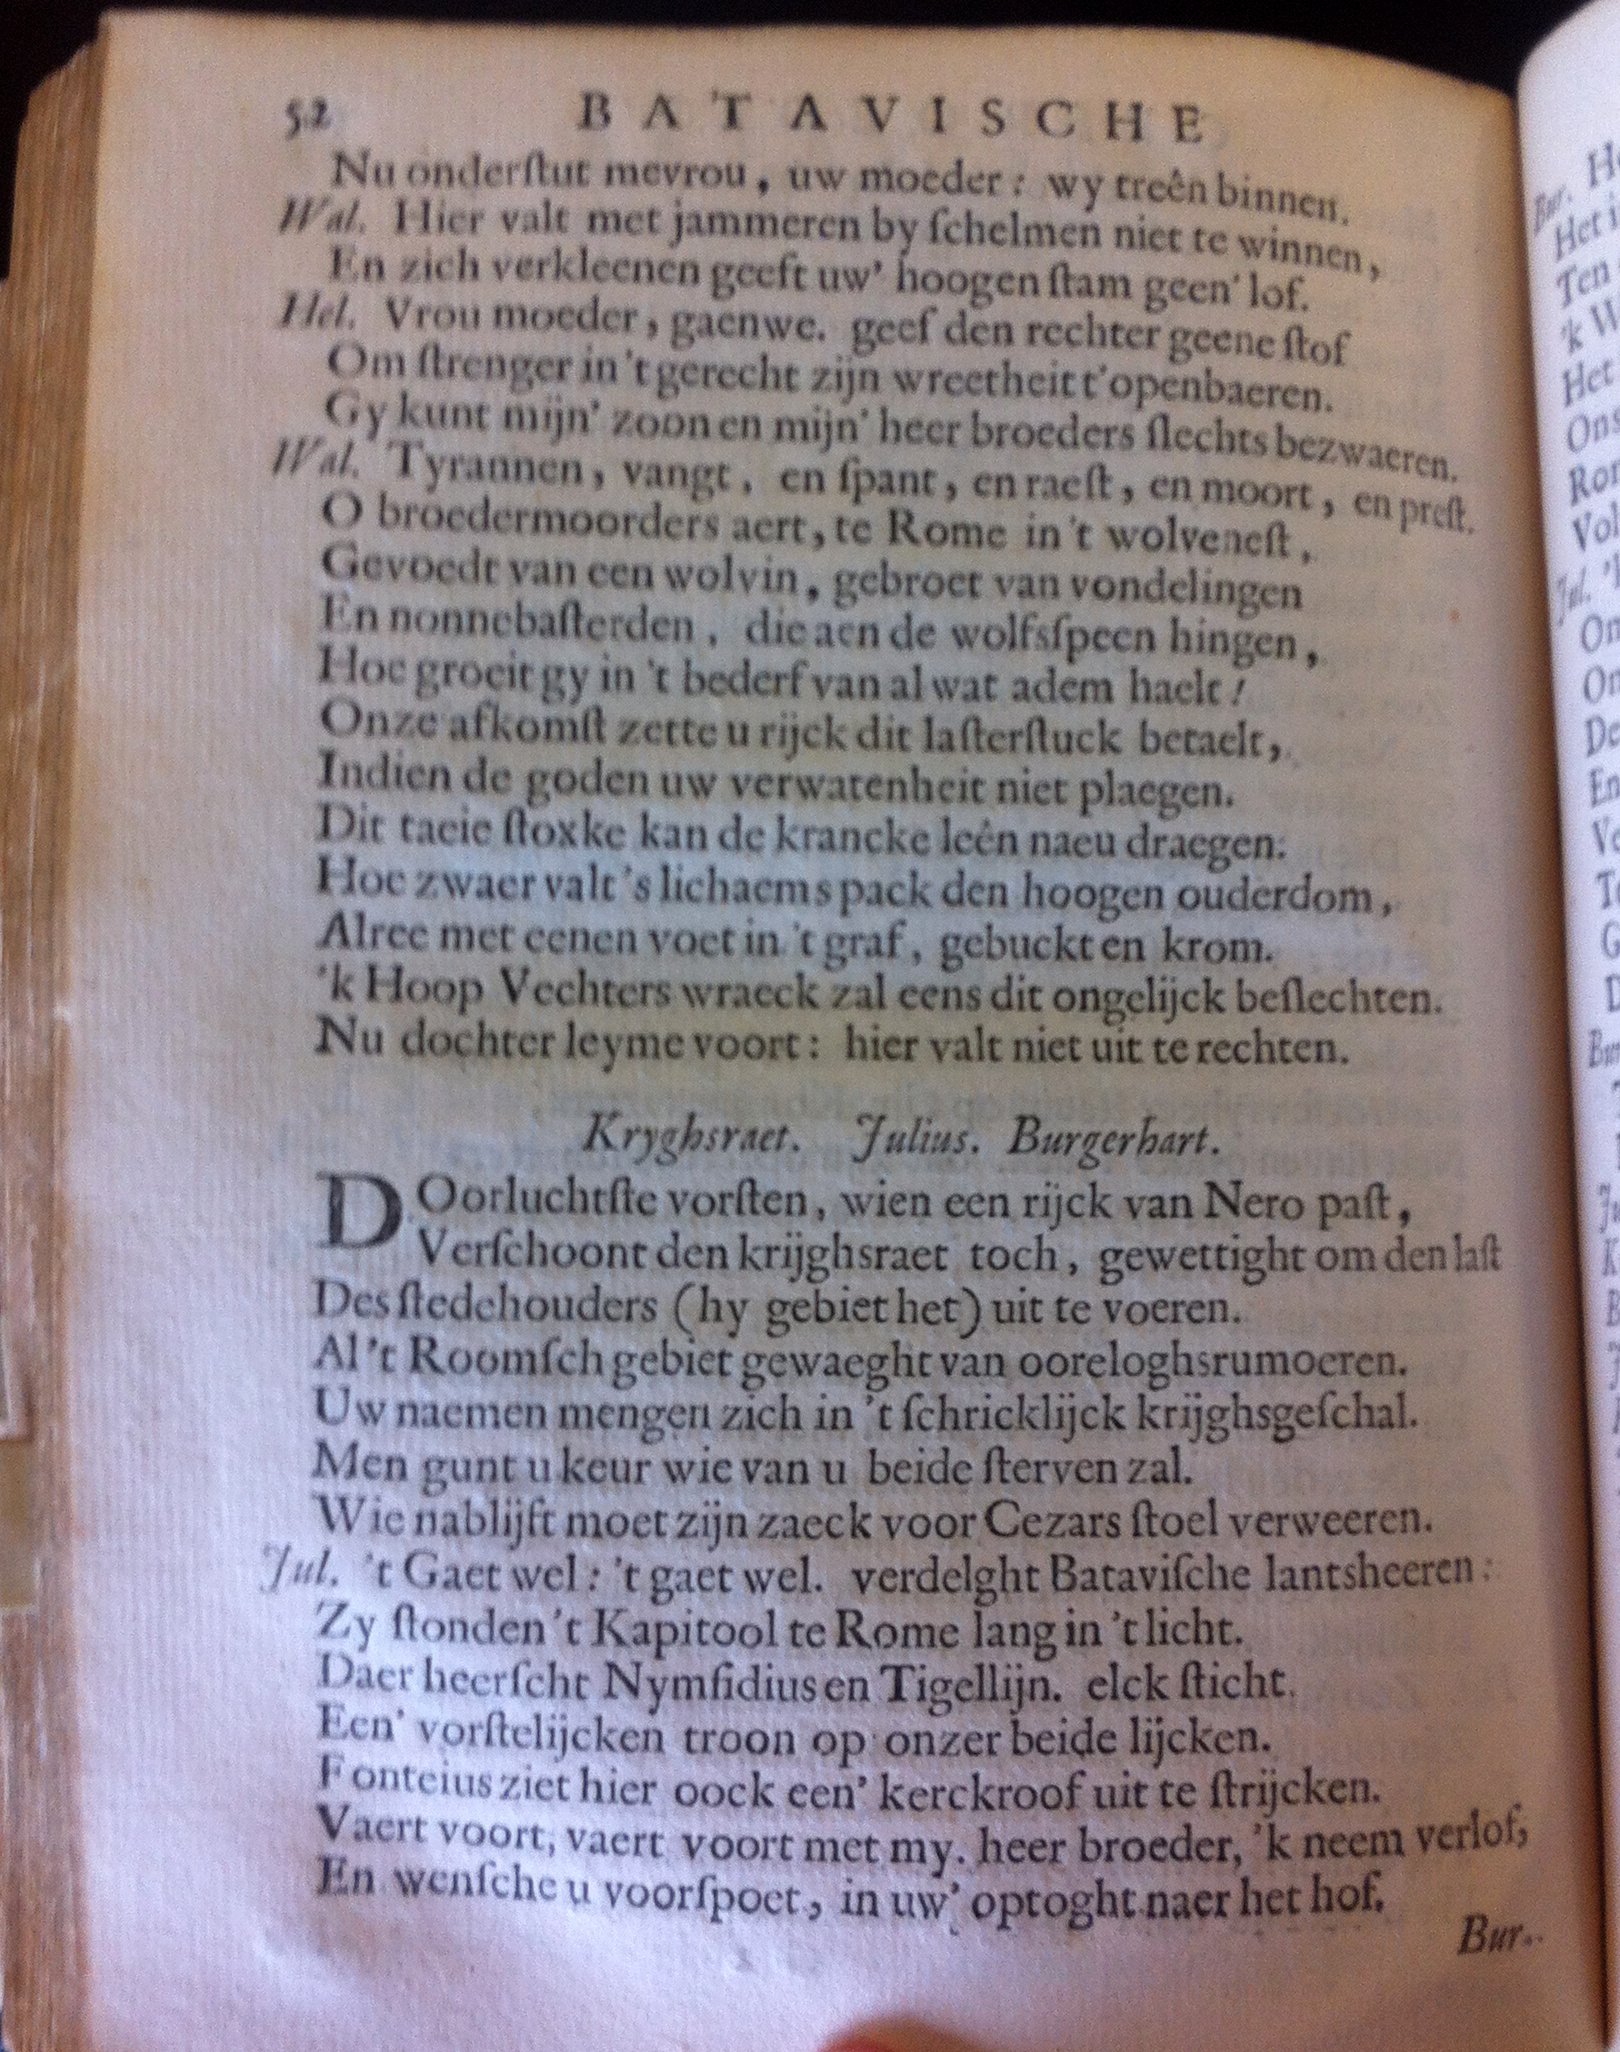 52 BATAVISCHE
Nu onderſtut mevrou, uw moeder: wy treên binnen.
Wal. Hier valt met jammeren by ſchelmen niet te winnen,
En zich verkleenen geeft uw' hoogen ſtam geen' lof.
Hel. Vrou moeder, gaenwe. geef den rechter geene ſtof
Om ſtrenger in 't gerecht zijn wreetheit t'openbaeren.
Gy kunt mijn' zoon en mijn' heer broeders ſlechts bezwaeren.
Wal. Tyrannen, vangt, en ſpant, en raeſt, en moort, en preſt.
O broedermoorders aert, te Rome in 't wolveneſt,
Gevoedt van een wolvin, gebroet van vondelingen
En nonnebaſterden, die aen de wolfsſpeen hingen,
Hoe groeit gy in 't bederf van al wat adem haelt!
Onze afkomſt zette u rijck dit laſterſtuck betaelt,
Indien de goden uw verwatenheit niet plaegen.
Dit taeie ſtoxke kan de krancke leên naeu draegen.
Hoe zwaer valt 's lichaems pack den hoogen ouderdom,
Alree met eenen voet in 't graf, gebuckt en krom.
'k Hoop Vechters wraeck zal eens dit ongelijck beſlechten.
Nu dochter leyme voort: hier valt niet uit te rechten.
Kryghsraet. Julius. Burgerhart.
DOorluchtſte vorſten, wien een rijck van Nero paſt,
Verſchoont den krijghsraet toch, gewettight om den laſt
Des ſtedehouders (hy gebiet het) uit te voeren.
Al 't Roomſch gebiet gewaeght van ooreloghsrumoeren.
Uw naemen mengen zich in 't ſchricklijck krijghsgeſchal.
Men gunt u keur wie van u beide ſterven zal.
Wie nablijft moet zijn zaeck voor Cezars ſtoel verweeren.
Jul. 't Gaet wel: 't gaet wel. verdelght Bataviſche lantsheeren:
Zy ſtonden 't Kapitool te Rome lang in 't licht.
Daer heerſcht Nymfidius en Tigellijn. elck ſticht
Een' vorſtelijcken troon op onzer beide lijcken.
Fonteius ziet hier oock een' kerckroof uit te ſtrijcken.
Vaert voort, vaert voort met my. heer broeder, 'k neem verlof,
En wenſche u voorſpoet, in uw' optoght naer het hof.
Bur.